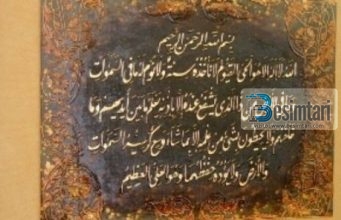 بسم الله الرحمن الرحیم
الله لا اله الا هو الحی القیوم لا تأخذه سنة ولا نوم له ما فی السموات
وما فی الارض من ذا الذی یشفع عنده الا باذنه یعلم ما بین ایدیهم وما
خلفهم ولا یحیطون بشیء من علمه الا بما شاء وسع کرسیه السموات
والارض ولا یؤده حفظهما وهو العلی العظیم
Besimtari